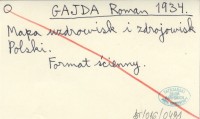 Q GAJDA Roman 1934.
Mapa uzdrowisk i zdrojowisk
Polski.
Format ścienny.